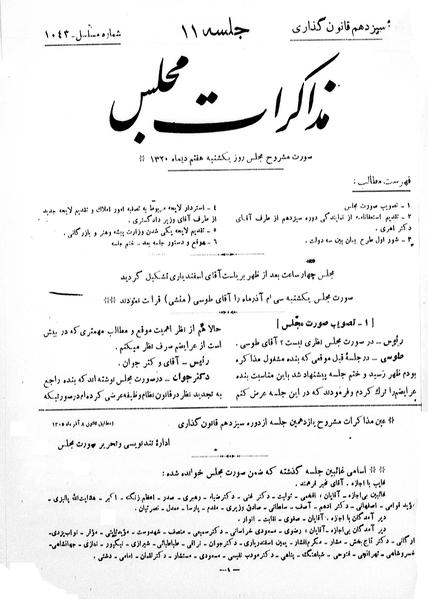 سیزدهم قانون گذاری
جلسه ۱۱
شماره مسلسل - ۱۰۴۳
مذاکرات مجلس
صورت مشروح مجلس روز یکشنبه هفتم دیماه ۱۳۲۰
فهرست مطالب:
۱ - تصویب صورت مجلس
۲ - تقدیم استعفانامه از نمایندگی دوره سیزدهم از طرف آقای
دکتر اهری.
۳ - شور اول طرح پیمان بین سه دولت.
۴ - استرداد لایحه مربوط به تصفیه امور املاک و تقدیم لایحه جدید
از طرف آقای وزیر دادگستری.
۵ - تقدیم لایحه یکی شدن وزارت پیشه و هنر و بازرگانی.
۶ - موقع و دستور جلسه بعد - ختم جلسه
مجلس چهار ساعت بعد از ظهر بریاست آقای اسفندیاری تشکیل گردید
صورت مجلس یکشنبه سی ام آذر ماه را آقای طوسی (منشی) قرائت نمودند
[۱ - تصویب صورت مجلس]
رئیس - در صورت مجلس نظری نیست؟ آقای طوسی.
طوسی - در جلسه قبل موقعی که بنده مشغول مذاکره
بودم ظهر رسید و ختم جلسه پیشنهاد شد باین مناسبت بنده
عرایضم را ترك کردم و فرمودند که در این جلسه عرض کنم
حالا هم از نظر اهمیت موقع و مطالب مهمتری که در پیش
است از عرایضم صرف نظر میکنم.
رئیس - آقای دکتر جوان.
دکتر جوان - در صورت مجلس نوشته اند که بنده راجع
به تجدید نظر در قانون نظام وظیفه عرضی کرده ام در صورتیکه
عین مذاکرات مشروح یازدهمین جلسه از دوره سیزدهم قانون گذاری
(مطابق قانون ۸ آذر ماه ۱۳۰۵)
اداره تندنویسی و تحریر صورت مجلس
اسامی غائبین جلسه گذشته که ضمن صورت مجلس خوانده شده:
غایب با اجازه - آقای
غائبین بی اجازه - آقایان:
دیر آمدگان با اجازه - آقایان: صفوی - نقابت - انوار -
دیر آمدگان بی اجازه - آقایان:
- ۱ -